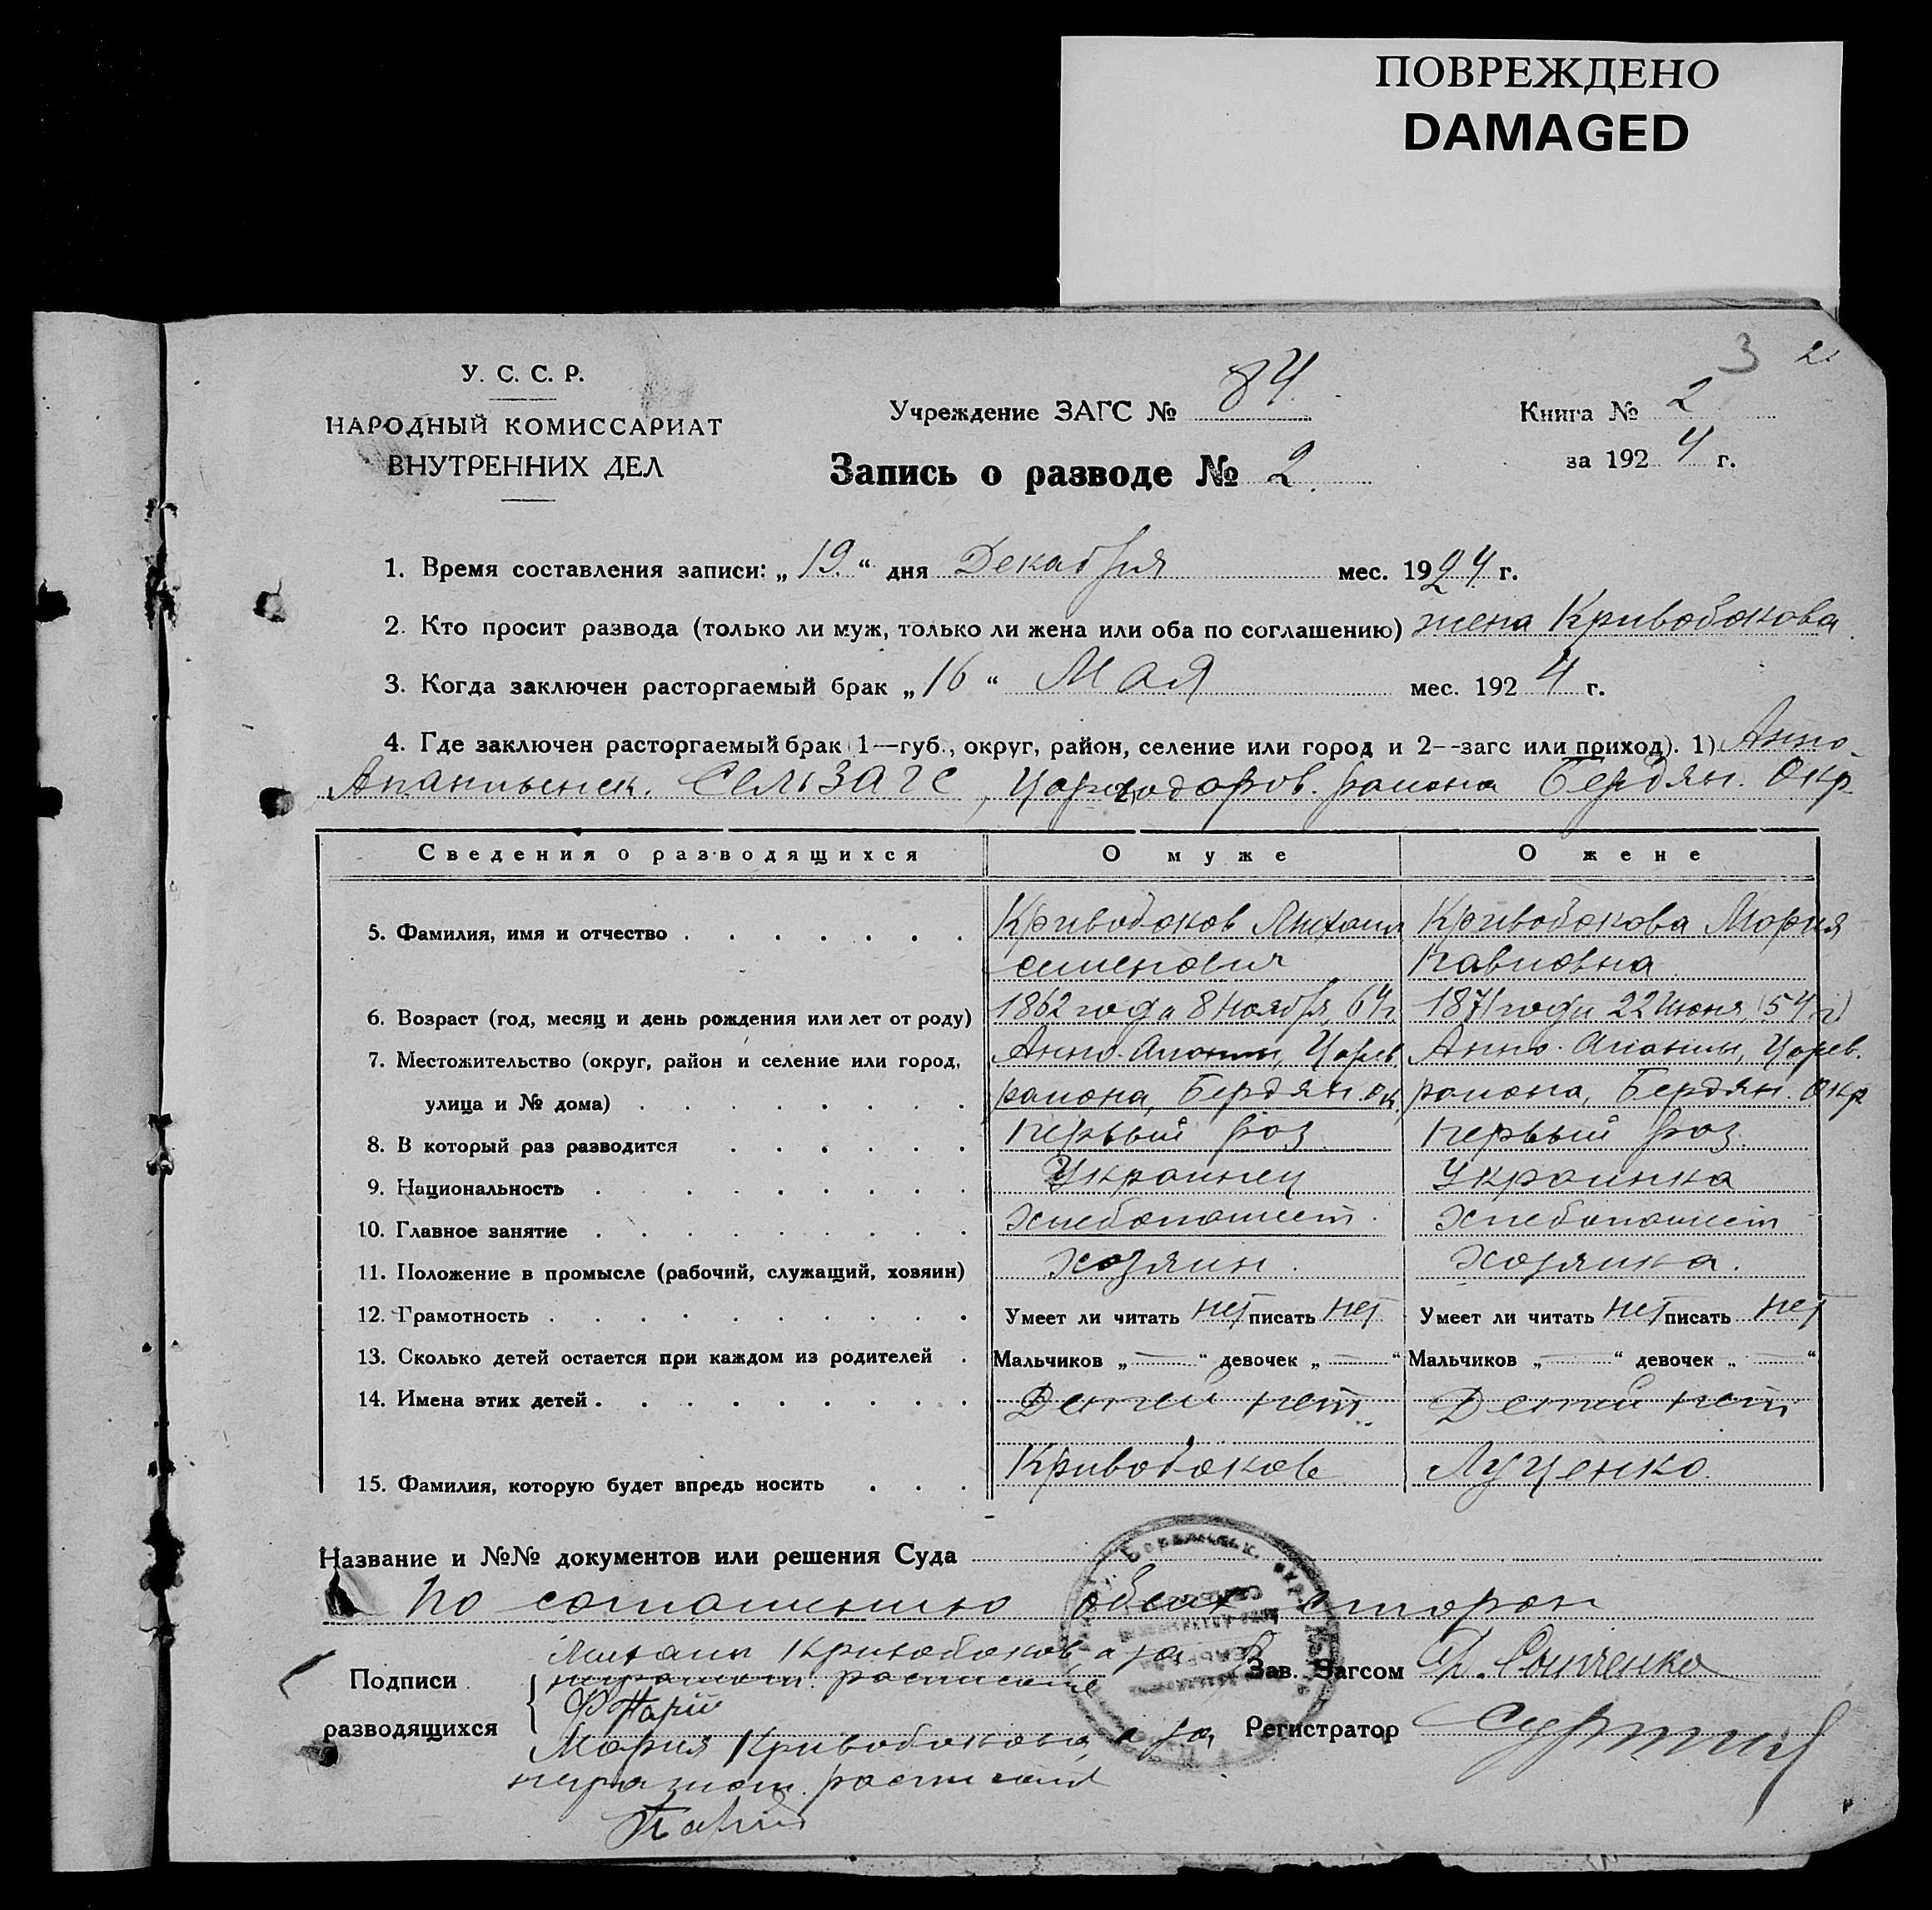 ПОВРЕЖДЕНО
DAMAGED
3 2
У. С. С. Р.
НАРОДНЫЙ КОМИССАРИАТ
ВНУТРЕННИХ ДЕЛ
Учреждение ЗАГС № 84
Книга № 2
за 1924 г.
Запись о разводе № 2.
1. Время составления записи: „19.“ дня Декабря мес. 1924 г.
2. Кто просит развода (только ли муж, только ли жена или оба по соглашению) жена Кривобокова
3. Когда заключен расторгаемый брак „16“ Мая мес. 1924 г.
4. Где заключен расторгаемый брак (1—губ., округ, район, селение или город и 2—загс или приход). 1) Анно-
Апантьенск. Сельзагс, района Бердян. Окр
Сведения о разводящихся О муже О жене
5. Фамилия, имя и отчество Кривобоков Михаил Кривобокова Мария
семенович Павловна
6. Возраст (год, месяц и день рождения или лет от роду) 1862 года 8 ноября, 64 г. 1871 года 22 июня (54 г)
7. Местожительство (округ, район и селение или город, Анно. Царев. Анно. Царев.
улица и № дома) района, Бердян. ок. района, Бердян. Окр
8. В который раз разводится первый раз первый раз.
9. Национальность Украинец Украинка
10. Главное занятие Хлебопашест. Хлебопашест
11. Положение в промысле (рабочий, служащий, хозяин) хозяин. хозяйка.
12. Грамотность Умеет ли читать нет писать нет Умеет ли читать нет писать нет
13. Сколько детей остается при каждом из родителей Мальчиков „—“ девочек „—“ Мальчиков „—“ девочек „—“
14. Имена этих детей Детей нет. Детей нет
15. Фамилия, которую будет впредь носить Кривобоков Луценко.
Название и №№ документов или решения Суда
По соглашению обеих сторон
Подписи
разводящихся
Михаил Кривобоков, а за
неграмот. расписался
Мария Кривобокова, а за
неграмот. расписался
Зав. Загсом
Регистратор